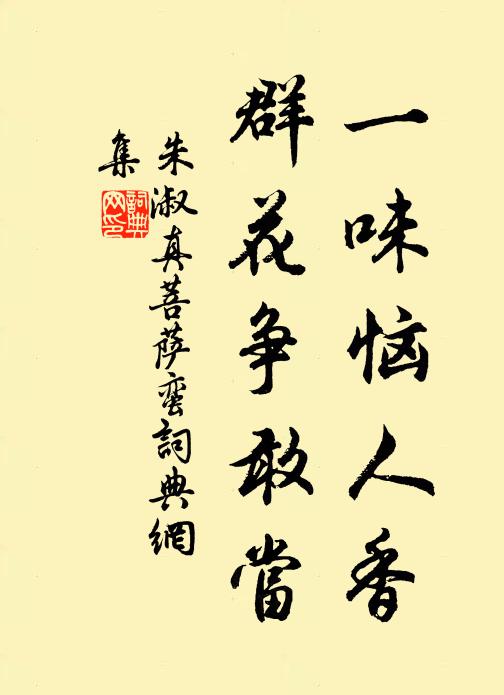 一味恼人香
群花争敢當
朱淑真菩萨蛮詞典網
集
詞典网印